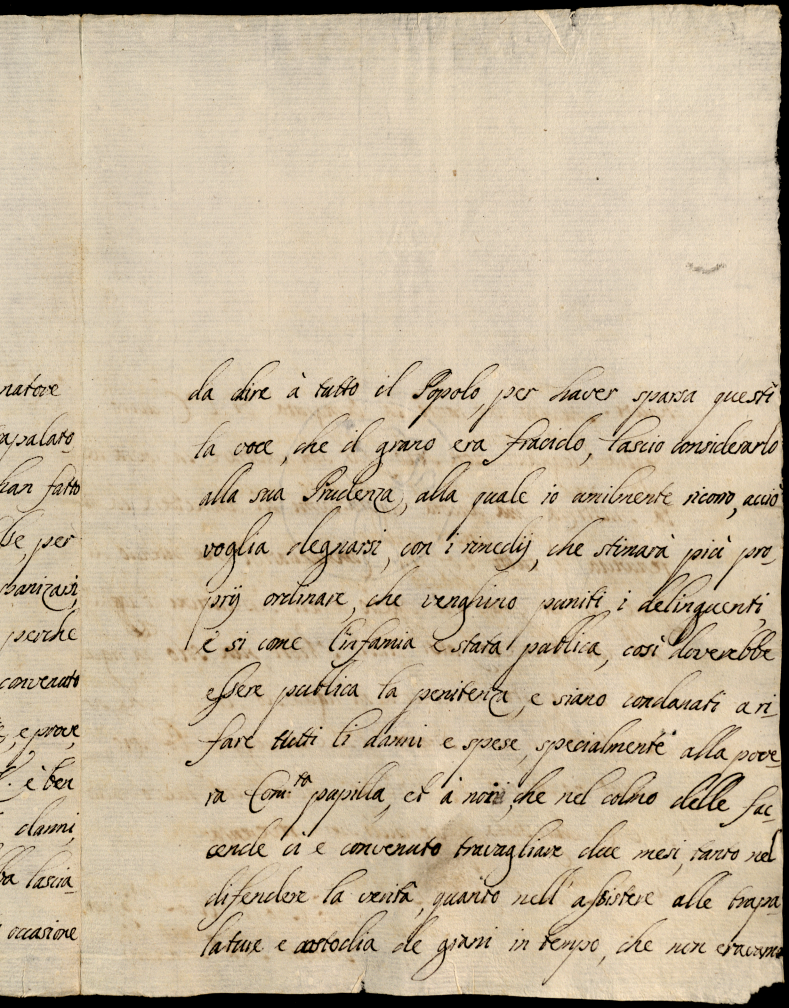 natore
apalato-
han fatto
be, per
banizarsi,
perche
convenuto
e prove,
è ben
danni,
ba lascia-
occasione
da dire à tutto il Popolo, per haver sparsa questi
la voce, che il grano era fracido, lascio considerarlo
alla sua Prudenza, alla quale io umilmente ricorro, acciò
voglia degnarsi, con i rimedij, che stimarà più pro-
prij ordinare, che venghino puniti i delinquenti,
e si come l'infamia è stata publica, così doverebbe
essere publica la penitenza, e siano condanati a ri-
fare tutti li danni e spese, specialmente alla pove-
ra Com.tà papilla, et à noi, che nel colmo delle fac-
cende ci e convenuto travagliare due mesi, tanto nel
difendere la verità, quanto nell'assistere alle trapa-
lature e custodia de grani in tempo, che non eravamo